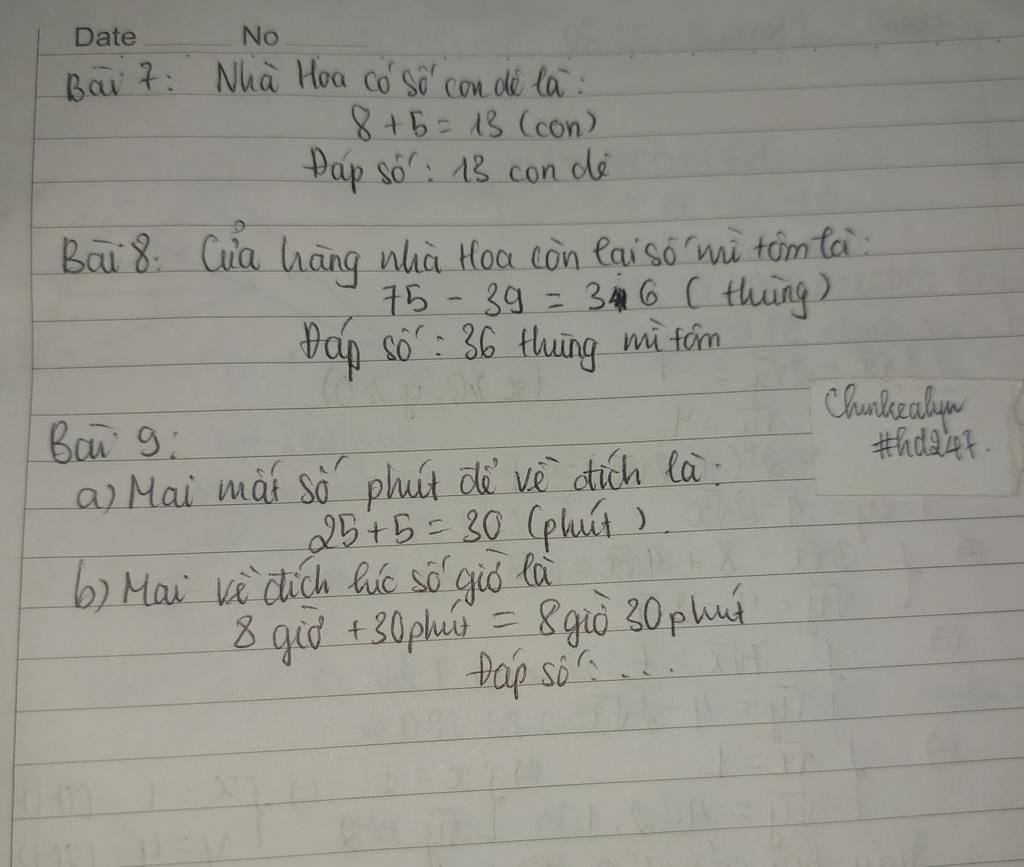 Date No
Bài 7: Nhà Hoa có số con dê là:
8 + 5 = 13 (con)
Đáp số: 13 con dê
Bài 8: Cửa hàng nhà Hoa còn lại số mì tôm là:
75 - 39 = 36 (thùng)
Đáp số: 36 thùng mì tôm
Chunkealyn
#hd247.
Bài 9:
a) Mai mất số phút để về đích là:
25 + 5 = 30 (phút).
b) Mai về đích lúc số giờ là
8 giờ + 30 phút = 8 giờ 30 phút
Đáp số: ...